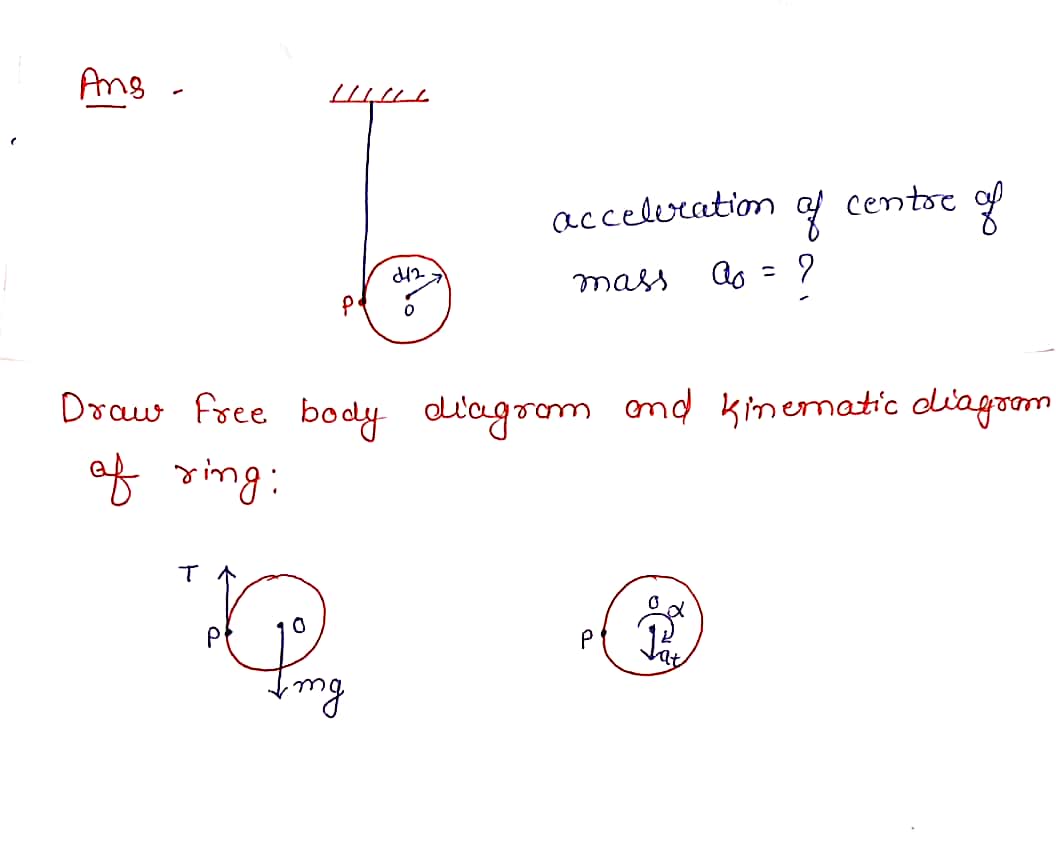 Ans -
acceleration of centre of
mass a₀ = ?
d/2
P
O
Draw free body diagram and kinematic diagram
of ring:
T
P
O
mg
O
α
P
at